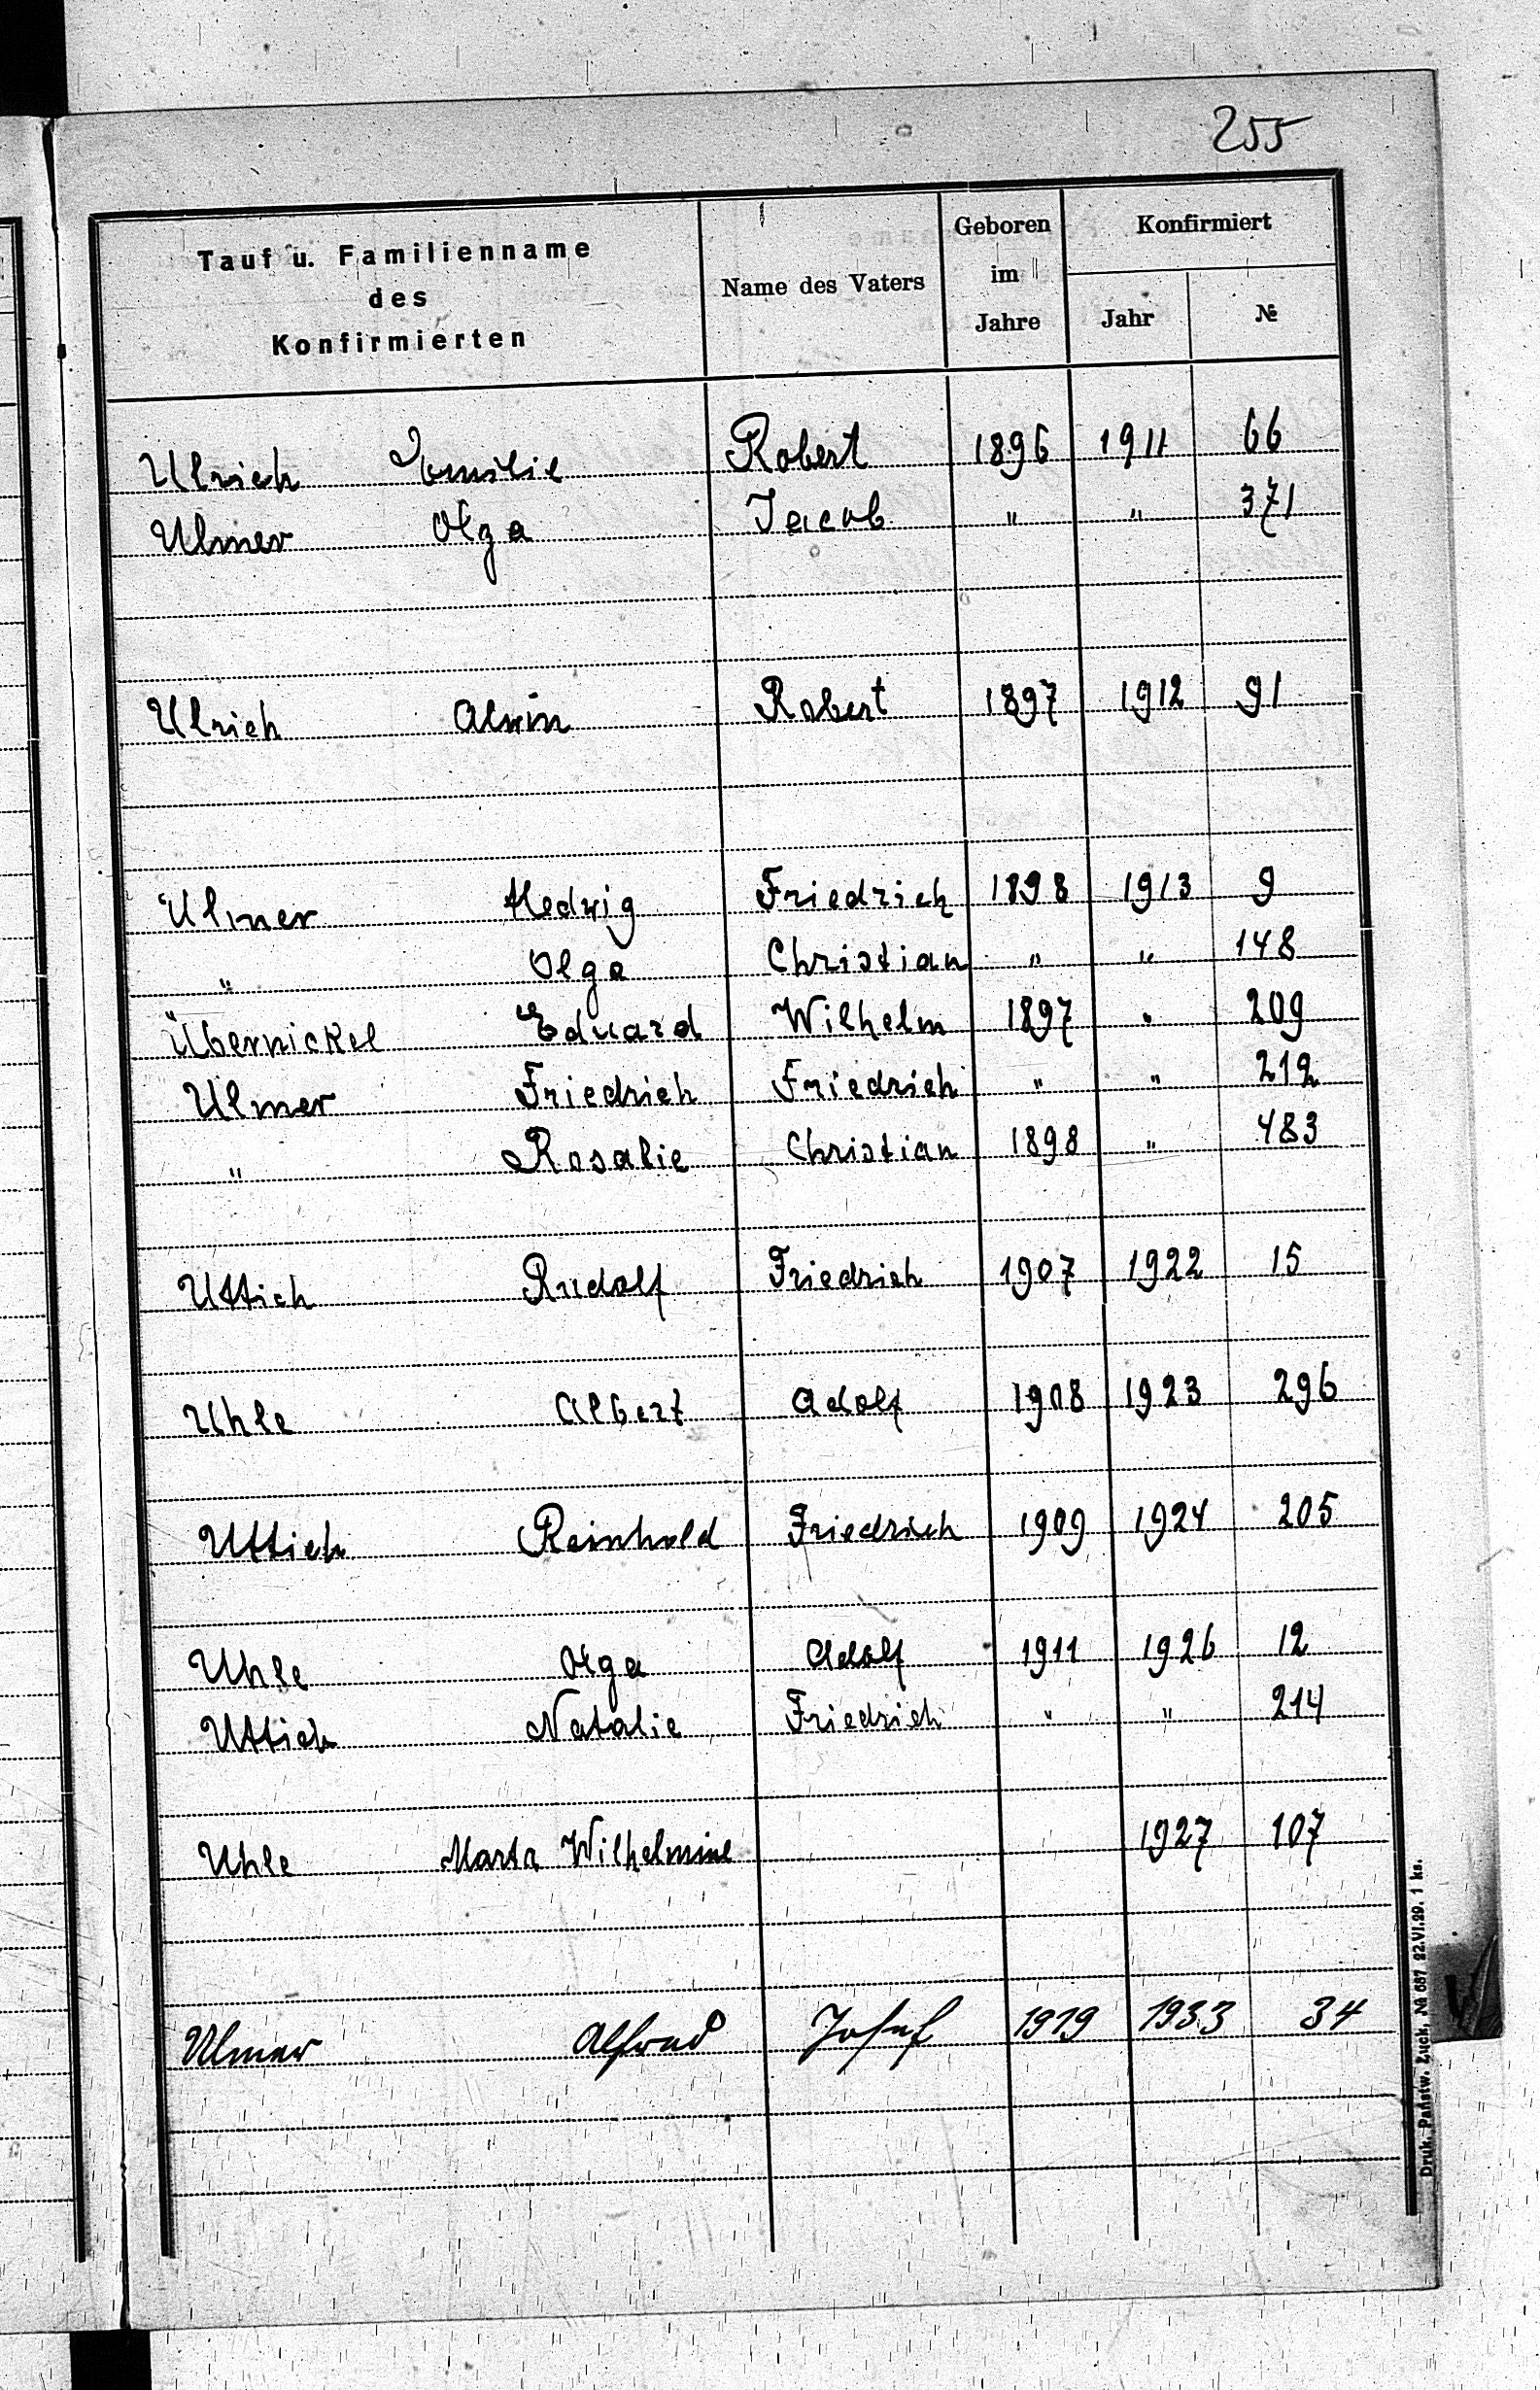 255
Tauf u. Familienname des Konfirmierten Name des Vaters Geboren im Jahre Konfirmiert Jahr №
Ulrich Emilie Robert 1896 1911 66
Ulmer Olga Jacob " " 371
Ulrich Alwin Robert 1897 1912 91
Ulmer Hedwig Friedrich 1898 1913 9
" Olga Christian " " 148
Übernickel Eduard Wilhelm 1897 " 209
Ulmer Friedrich Friedrich " " 212
" Rosalie Christian 1898 " 483
Uttich Rudolf Friedrich 1907 1922 15
Uhle Albert Adolf 1908 1923 296
Uttich Reinhold Friedrich 1909 1924 205
Uhle Olga Adolf 1911 1926 12
Uttich Natalie Friedrich " " 214
Uhle Marta Wilhelmine 1927 107
Ulmer Alfred Josef 1919 1933 34
Druk. Państw. Łuck. № 687 22.VI.29. 1 ks.